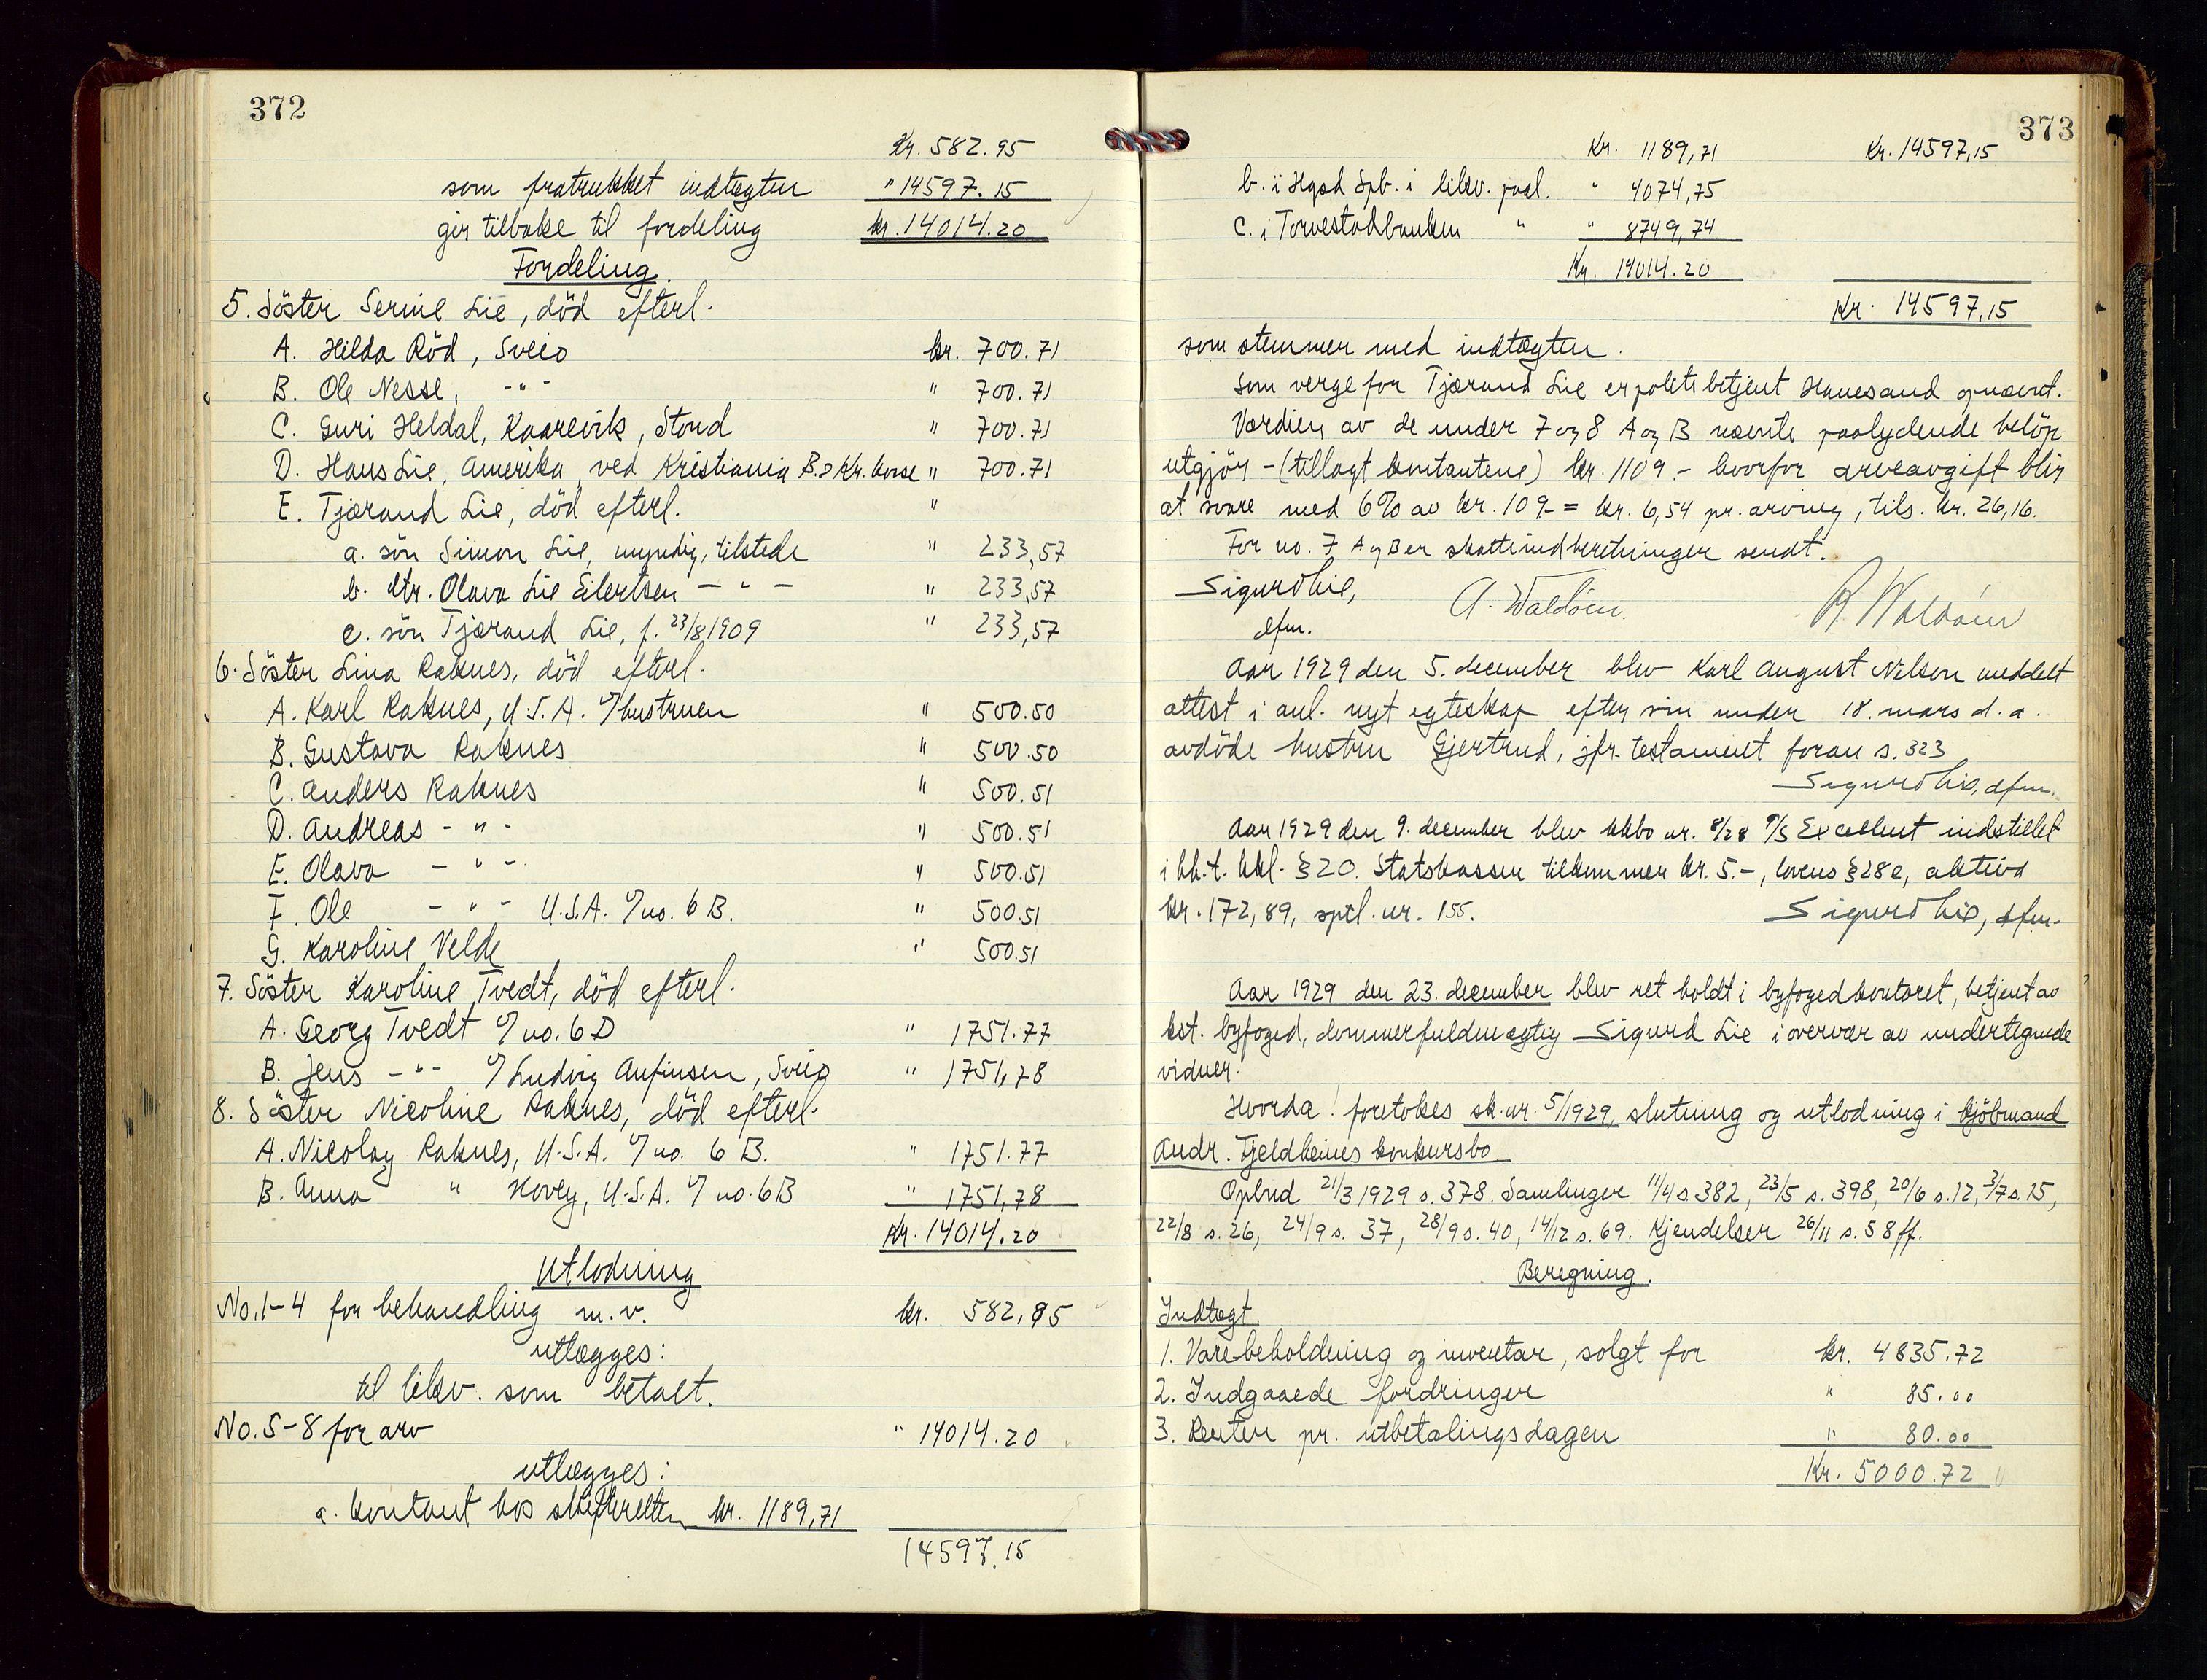 372
Kr. 582.95
som fratrukket indtægten " 14597.15
gir tilbake til fordeling kr. 14014.20
Fordeling.
5. Söster Serine Lie, död efterl.
A. Hilda Röd, Sveio kr. 700.71
B. Ole Nesse, -"- " 700.71
C. Guri Heldal, Kaarevik, Stord " 700.71
D. Hans Lie, Amerika, ved Kristiania B. & Kr. kasse " 700.71
E. Tjærand Lie, död efterl. "
a. sön Simon Lie, myndig, tilstede " 233,57
b. dtr. Olava Lie Eilertsen - " - " 233,57
c. sön Tjærand Lie, f. 23/8 1909 " 233,57
6. Söster Lina Raknes, död efterl.
A. Karl Raknes, U.S.A. v/ hustruen " 500.50
B. Gustava Raknes " 500.50
C. Anders Raknes " 500.51
D. Andreas - " - " 500.51
E. Olava - " - " 500.51
F. Ole - " - U.S.A. v/ no. 6 B. " 500.51
G. Karoline Velde " 500.51
7. Söster Karoline Tvedt, död efterl.
A. Georg Tvedt v/ no. 6 D " 1751.77
B. Jens - " - v/ Ludvig Anfinsen, Sveio " 1751,78
8. Söster Nicoline Raknes, död efterl.
A. Nicolay Raknes, U.S.A. v/ no. 6 B. " 1751.77
B. Anna " Hovey, U.S.A. v/ no. 6 B " 1751,78
Kr. 14014.20
Utlodning
No. 1-4 for behandling m.v. kr. 582,95
utlægges:
til likv. som betalt.
No. 5-8 for arv " 14014.20
utlægges:
a. kontant hos skifteretten kr. 1189,71
14597.15
373
Kr. 1189,71 Kr. 14597,15
b. i Hgsd Spb. i likv. paal. " 4074,75
c. i Torvestadbanken " " 8749,74
Kr. 14014.20
Kr. 14597,15
som stemmer med indtægten.
Som verge for Tjærand Lie er politibetjent Hanesand opnævnt.
Værdien av de under 7 og 8 A og B nævnte paalydende belöp
utgjör - (tillagt kontantene) kr. 1109.- hvorfor arveavgift blir
at svare med 6% av kr. 109.- = kr. 6,54 pr. arving, tils. kr. 26,16.
For no. 7 A og B er skatteindberetninger sendt.
Sigurd Lie, A. Waldörn. R. Waldörn
dfm.
Aar 1929 den 5. december blev Karl August Nilsen meddelt
attest i anl. nyt egteskap efter sin under 18. mars d.a.
avdöde hustru Gjertrud, jfr. testament foran s. 323
Sigurd Lie, dfm.
Aar 1929 den 9. december blev kkbo nr. 8/28 A/S Excellent indstillet
i hh.t. kkl. § 20. Statskassen tilkommer kr. 5.-, lovens § 28 e, aktiva
kr. 172,89, sptl. nr. 155. Sigurd Lie, dfm.
Aar 1929 den 23. december blev ret holdt i byfogedkontoret, betjent av
kst. byfoged, dommerfuldmægtig Sigurd Lie i overvær av undertegnede
vidner.
Hvorda! foretokes sk. nr. 5/1929, slutning og utlodning i kjöbmand
Andr. Tjeldheims konkursbo
Opbud 21/3 1929 s. 378. Samlinger 11/4 s 382, 23/5 s. 398, 20/6 s. 12, 3/7 s. 15,
22/8 s. 26, 24/9 s. 37, 28/9 s. 40, 14/12 s. 69. Kjendelser 26/11 s. 58 ff.
Beregning.
Indtægt
1. Varebeholdning og inventar, solgt for kr. 4835.72
2. Indgaaede fordringer " 85.00
3. Renter pr. utbetalingsdagen " 80.00
Kr. 5000.72